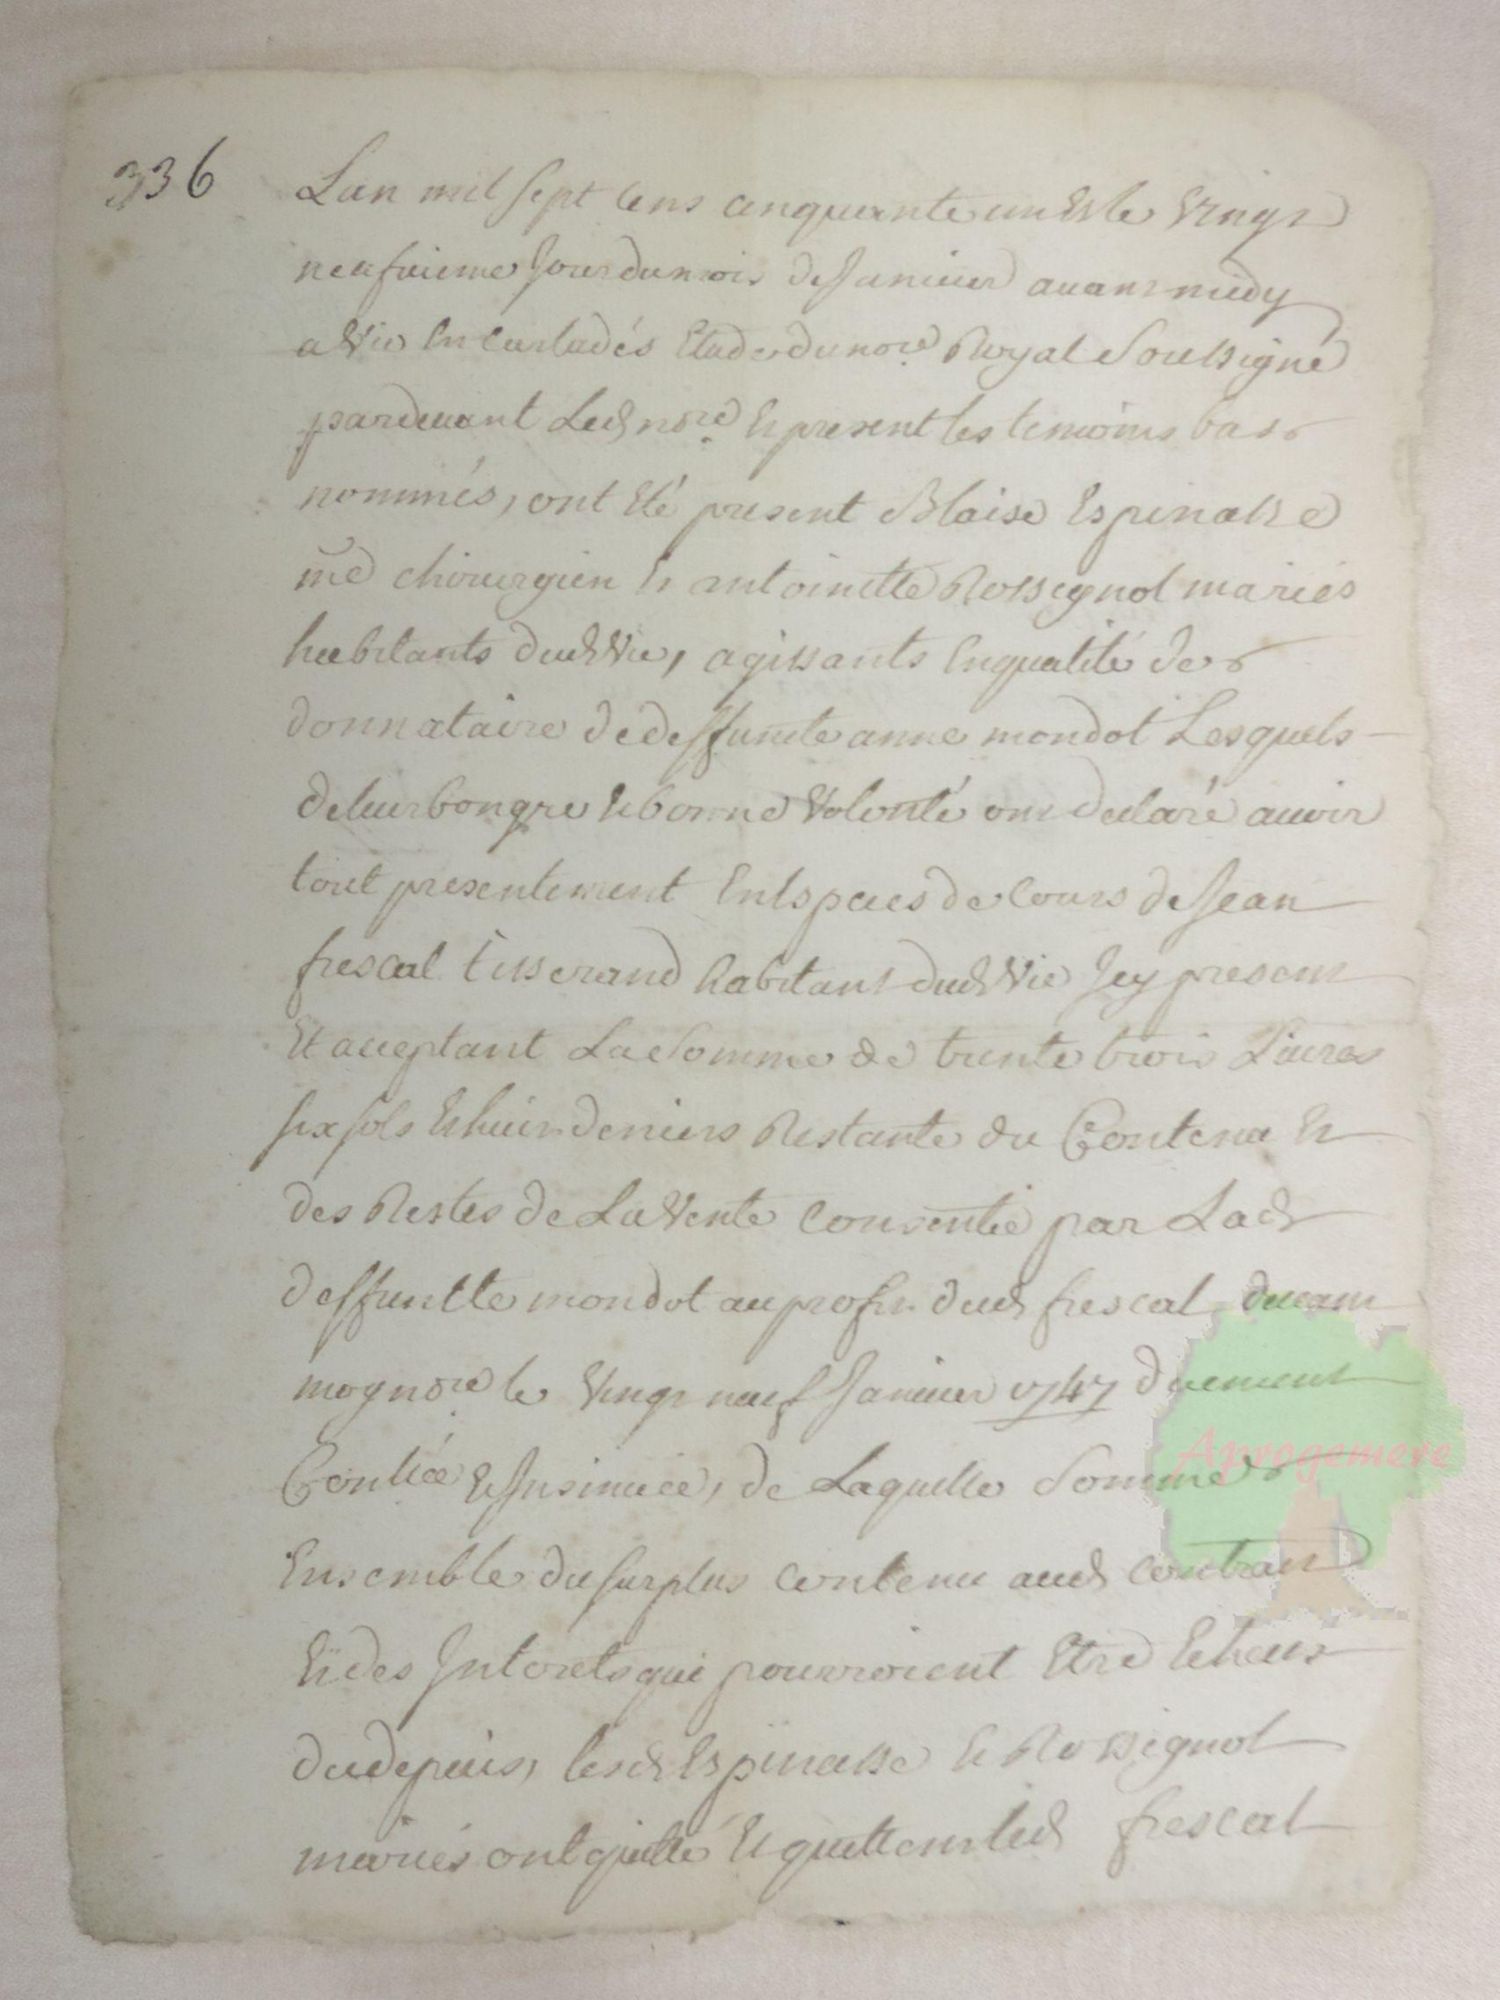 336
Lan mil sept cens cinquante un et le vingt
neufvieme jour du mois de Janvier avant midy
a Vic En Carladés Etude du nore Royal Soussigné
pardevant Led nore Et present les temoins bas
nommés, ont Eté present Blaise Espinasse
me chirurgien Et antoinette Rossignol mariés
habitants dud Vic, agissants En qualité de
donnataire de deffunte anne mondot Lesquels
de leur bon gre Et bonne Volonté ont declaré avoir
tout presentement En Especes de cours de Jean
frescal tisserand habitant dud Vic Icy present
Et acceptant La Somme de trente trois Livres
six sols Et huit deniers Restante du Contenu Et
des Restes de La Vente consentie par Lad
deffuntte mondot au profit dud frescal devant
moy nore le Vingt neuf Janvier 1747 duement
Conllée Et Insinuée, de Laquelle Somme
Ensemble du surplus contenu aud contrat
Et des Interets qui pourroient Etre Echeus
du depuis, lesd Espinasse Et Rossignol
mariés ont quitté Et quittent led frescal
Aprogemere